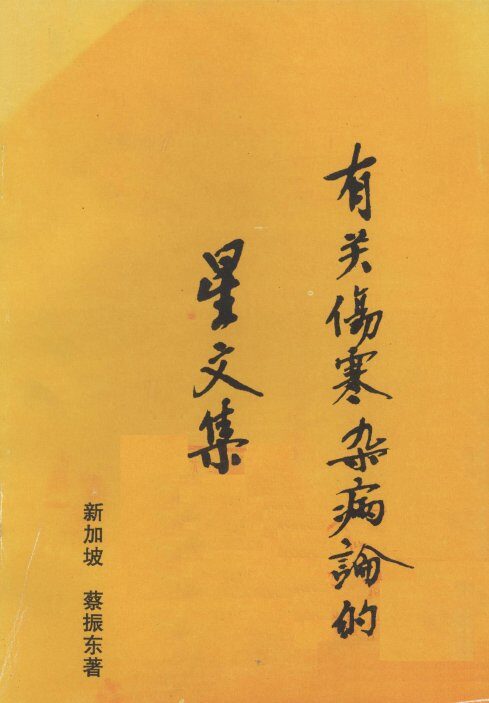 有关傷寒杂病論的
星文集
新加坡 蔡振东著